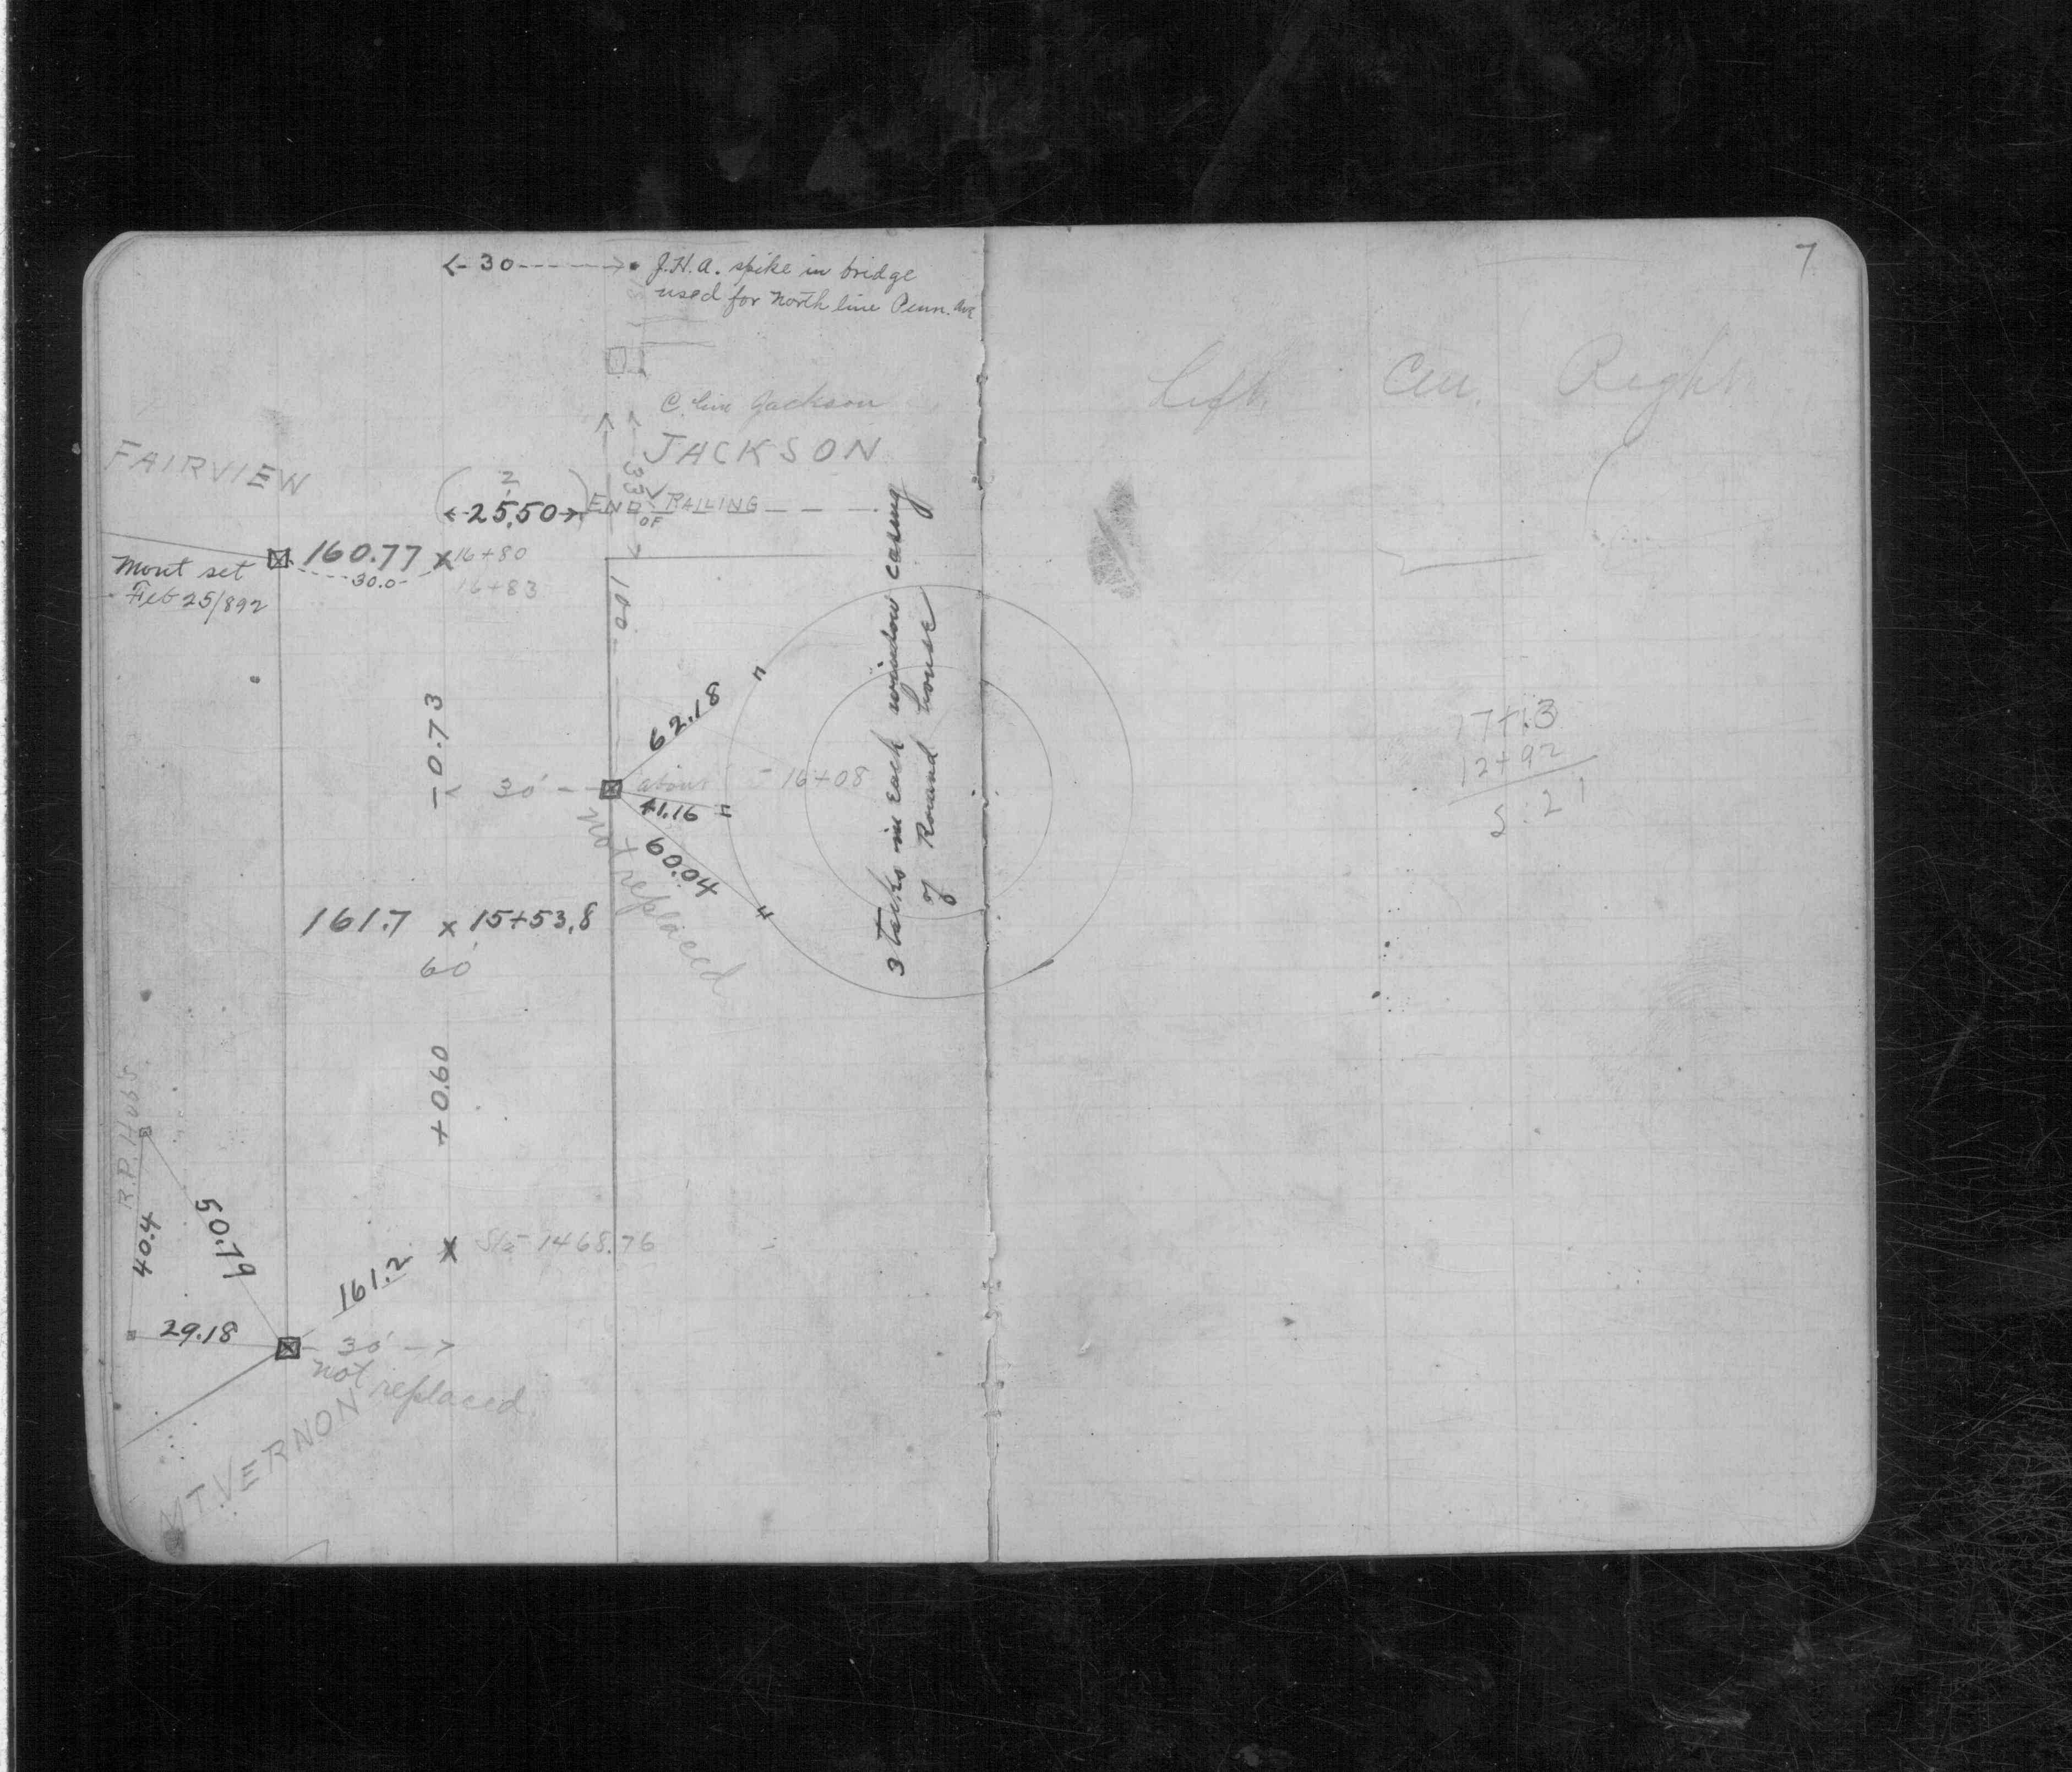 <-30----> J.H.A. spike in bridge
used for North line Penn. Ave
7
Left Cen. Right
C. line Jackson
JACKSON
FAIRVIEW
33
2
<-25.50-> END OF RAILING
160.77 x 16+80
30.0
16+83
Mont set
Feb 25/892
100.
3 tacks in each window casing
of Round house
-0.73
62.18
30' about 16+08
41.16
60.04
not replaced
17+13
12+92
5:21
161.7 x 15+53.8
60'
+0.60
R.P. Hubs
40.4
50.79
x Sta 1468.76
161.2
29.18
30' ->
not replaced
MT. VERNON